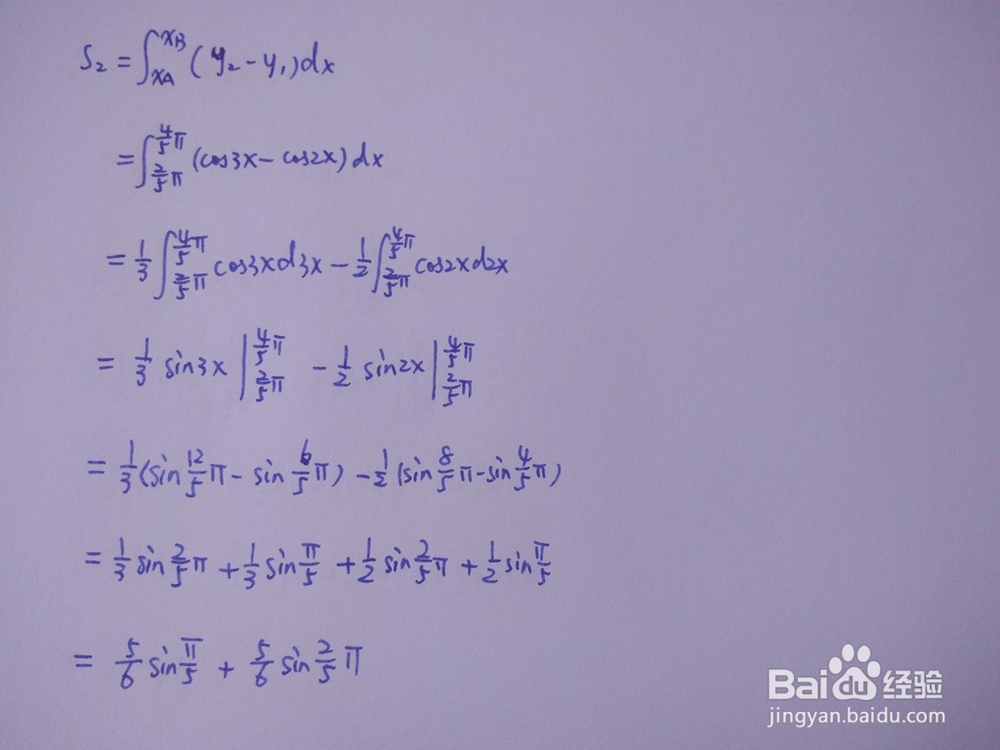 S₂ = ∫_{xA}^{xB} (y₂ - y₁)dx
= ∫_{2/5 π}^{4/5 π} (cos3x - cos2x) dx
= 1/3 ∫_{2/5 π}^{4/5 π} cos3xd3x - 1/2 ∫_{2/5 π}^{4/5 π} cos2xd2x
= 1/3 sin3x |_{2/5 π}^{4/5 π} - 1/2 sin2x |_{2/5 π}^{4/5 π}
= 1/3 (sin 12/5 π - sin 6/5 π) - 1/2 (sin 8/5 π - sin 4/5 π)
= 1/3 sin 2/5 π + 1/3 sin π/5 + 1/2 sin 2/5 π + 1/2 sin π/5
= 5/6 sin π/5 + 5/6 sin 2/5 π
Baidu 经验
jingyan.baidu.com